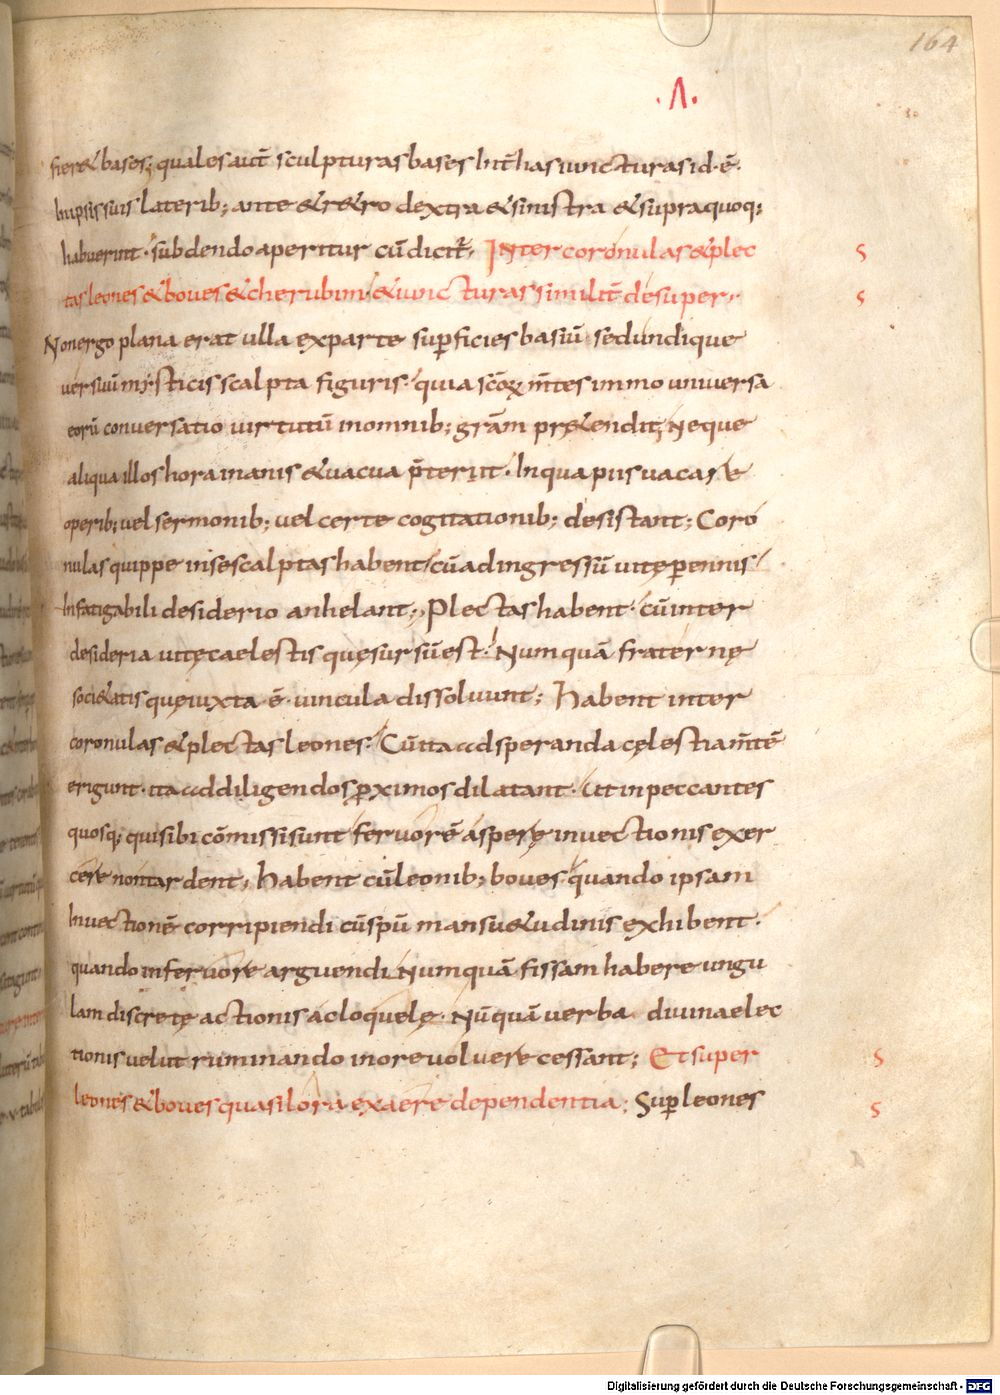 164
·Λ·
fier& bases; quales aut̄ sculpturas bases Int̄ has iuncturas id·ē·
In ipsis suis laterib; ante & r&ro dextra & sinistra & supra quoq;
habuerint· subdendo aperitur cū dicit̄· INter coronulas & plec
tas leones & boues & cherubim· & iuncturas similit̄ desuper·
Non ergo plana erat ulla exparte sup̄ficies basiū sed undique
versum mysticis scalpta figuris· quia sc̄oꝝ m̄tes immo universa
eorū conversatio virtutū inomnib; gr̄am pr&endit; Neque
aliqua illos hora inanis & vacua p̄terit· In qua piis vacare
operib; vel sermonib; vel certe cogitationib; desistant; Coro
nulas quippe in se scalptas habent cū ad ingressū vitę perennis
Infatigabili desiderio anhelant; Plectas habent· cū inter
desideria vitę caelestis quę sursū est· Numquā fraternę
soci&atis quę iuxta ē· vincula dissolvunt; Habent inter
coronulas & plectas leones· Cū ita ad speranda cęlestia m̄tē
erigunt· ita ad diligendos ꝓximos dilatant· Ut in peccantes
quosq; qui sibi cōmissi sunt fervorē asperę invectionis exer
cere non tardent; Habent cū leonib; boves quando ipsam
Invectionē corripiendi cū sp̄u mansu&udinis exhibent·
quando in fervore arguendi Numquā fissam habere ungu
lam discretę actionis ac loquelę· Nūquā verba divina elec
tionis velut ruminando in ore volvere cessant; Et super
leones & boves quasi lora ex aere dependentia; Sup̄ leones
s
s
s
s
Digitalisierung gefördert durch die Deutsche Forschungsgemeinschaft - DFG